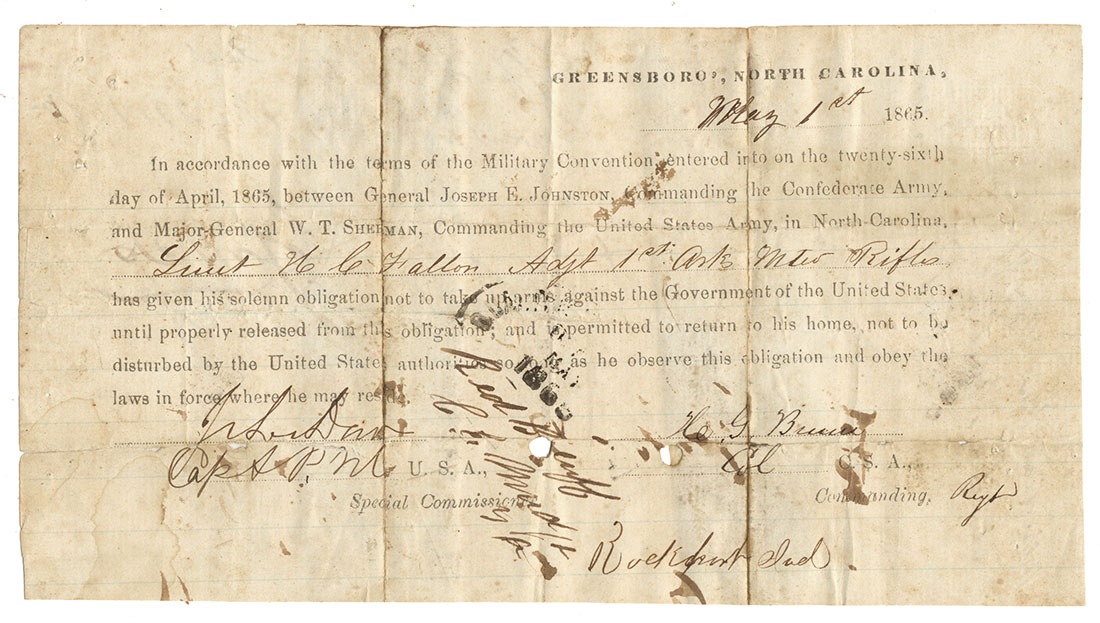 GREENSBORO', NORTH CAROLINA,
May 1st 1865.
In accordance with the terms of the Military Convention, entered into on the twenty-sixth
day of April, 1865, between General JOSEPH E. JOHNSTON, Commanding the Confederate Army,
and Major-General W. T. SHERMAN, Commanding the United States Army, in North-Carolina,
Lieut H C Fallon Adjt 1st Ark Mtd Rifles
has given his solemn obligation not to take up arms against the Government of the United States
until properly released from this obligation; and is permitted to return to his home, not to be
disturbed by the United States authorities so long as he observe this obligation and obey the
laws in force where he may reside.
H. G.
Capt & P. M. U. S. A.,
Col C. S. A.,
Special Commissioner.
Commanding, Regt
Rockport Ind
1865